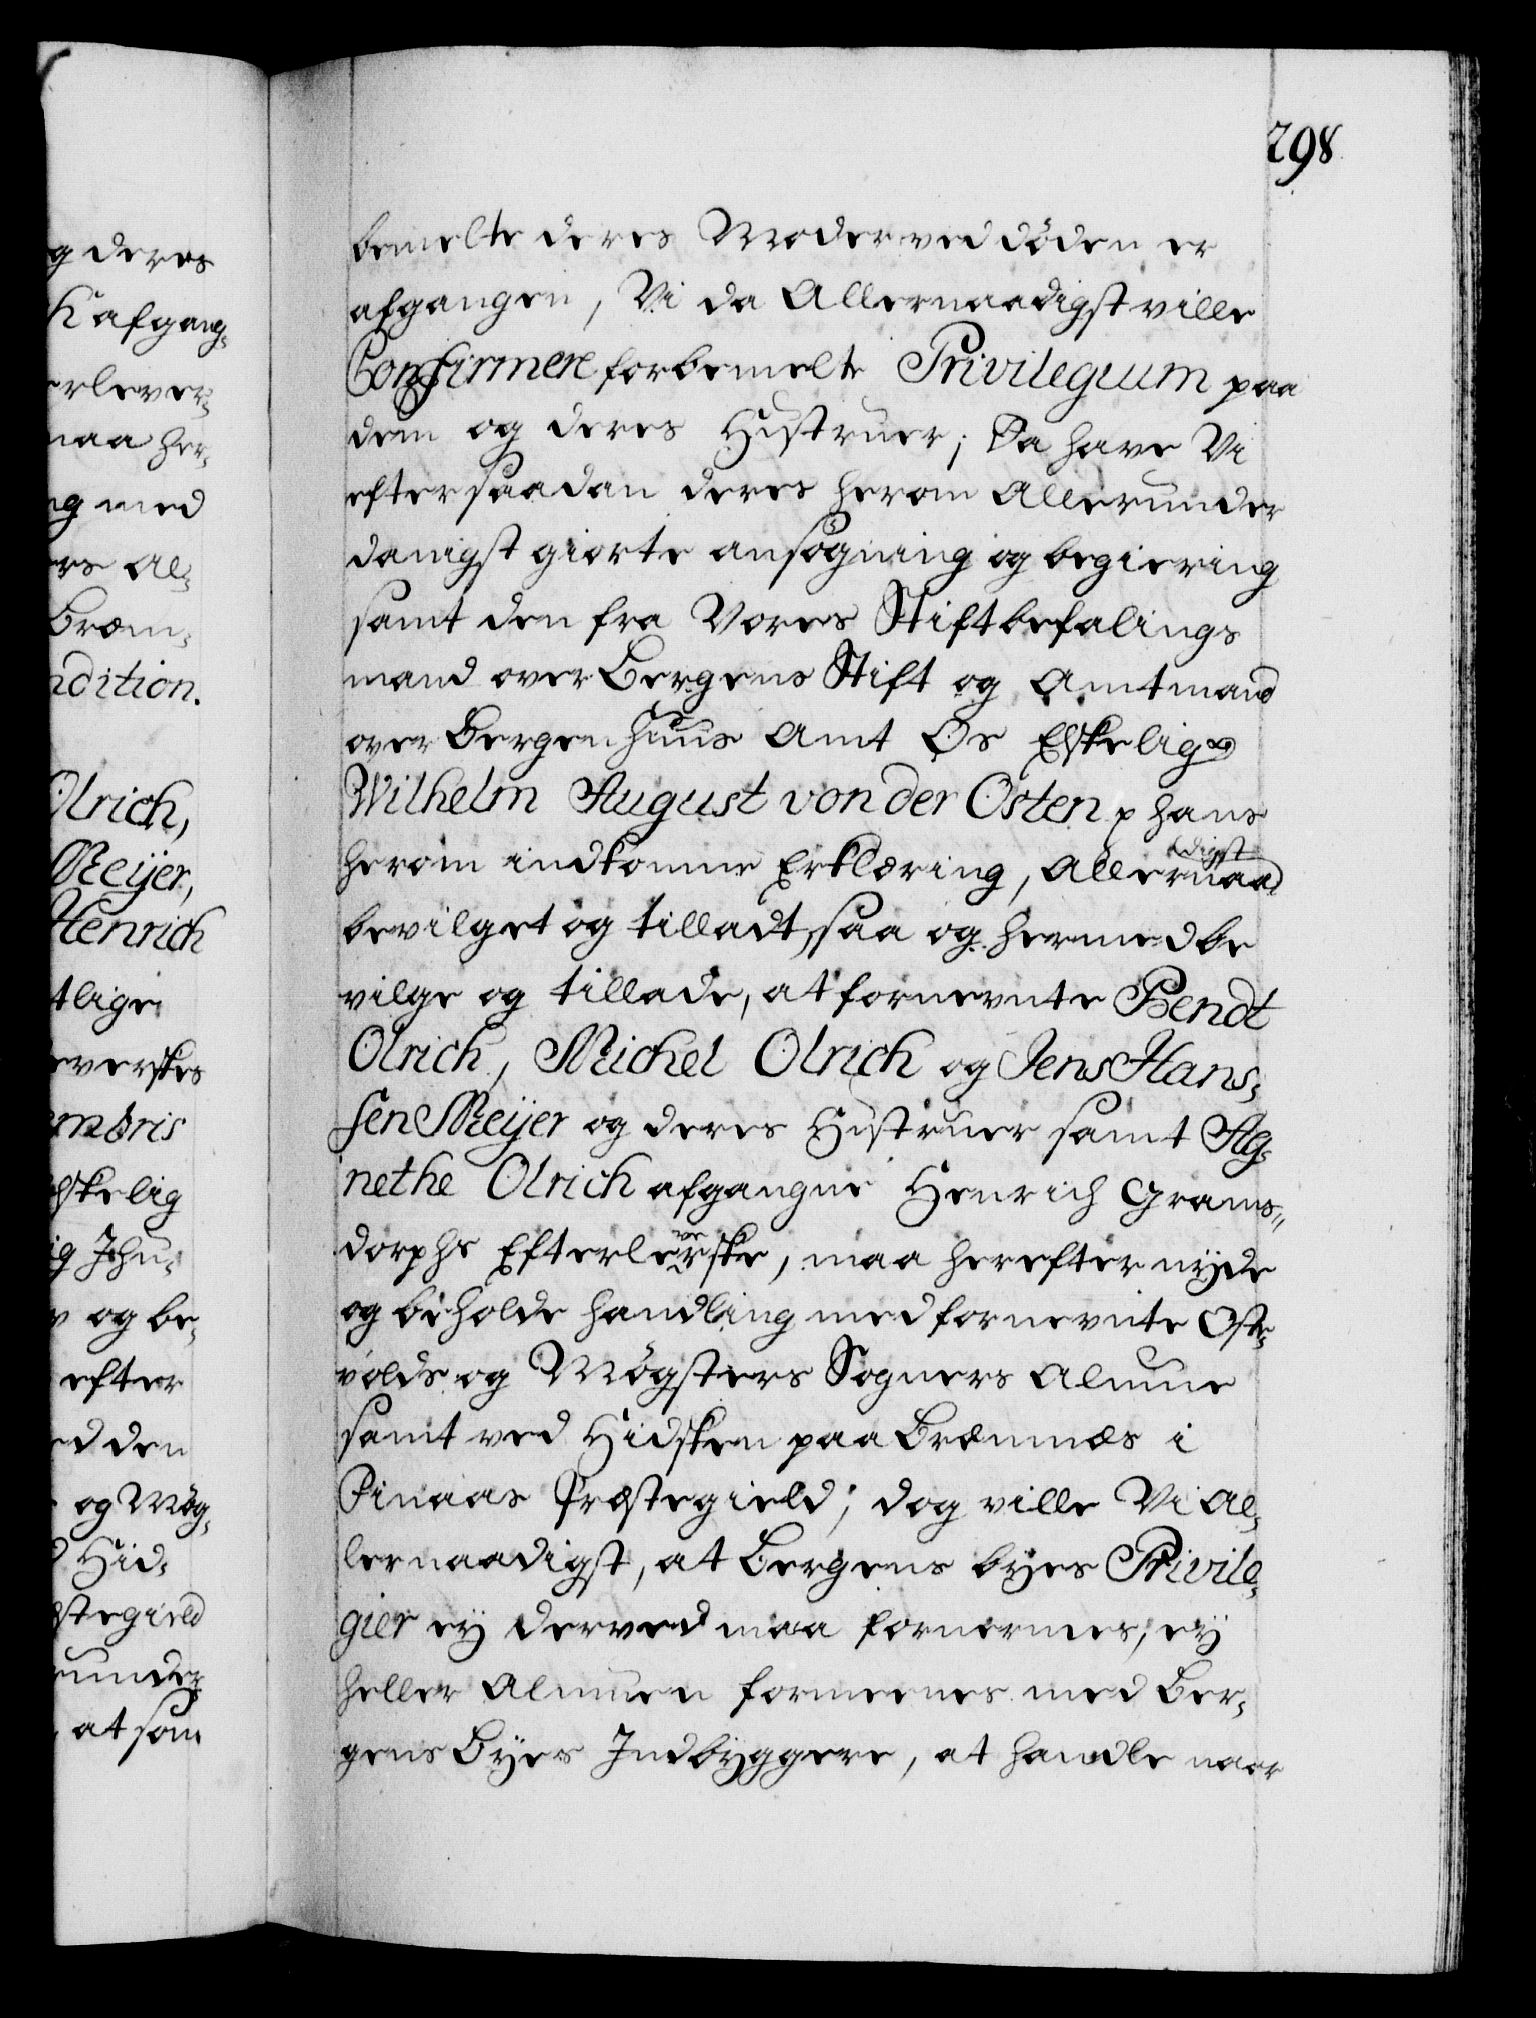 298
bemelte deres Moder ved döden er
afgangen, Vi da Allernaadigst ville
Confirmere forbemelte Privilegium paa
dem og deres Hustruer; Da have Vi
efter saadan deres herom Allerunder
danigst giorte ansögning og begiering
samt den fra Vores Stiftbefalings
mand over Bergens Stift og Amtmand
over Bergenhuus Amt Os Elskelig
Wilhelm August von der Osten p hans
herom indkomne Erklæring, Allernaadigst
bevilget og tilladt, saa og hermed be
vilge og tillade, at fornevnte Bendt
Olrich, Michel Olrich og Jens Hans,
sen Meijer og deres Hustruer samt Ag,
nethe Olrich afgangne Henrich Grams,,
dorphs Efterleverske, maa herefter nyde
og beholde handling med fornevnte Oste,
volds og Mögsters Sogners Almue
samt ved Hidsken paa Bræmnæs i
Finaas Præstegield; dog ville Vi Al,
lernaadigst, at Bergens byes Privile,
gier ey derved maa fornermes, ey
heller Almuen formeenes med Ber,
gens Byes Indbyggere, at handle naar
g deres
h afgang,
erlever,
maa her,
ng med
ers Al,
Bræm,
ndition.
Olrich,
Meijer,
Henrich
tlige
everskes
embris
lskelig
og be,
efter
ed den
og Mög,
Hid,
stegield
under
, at som